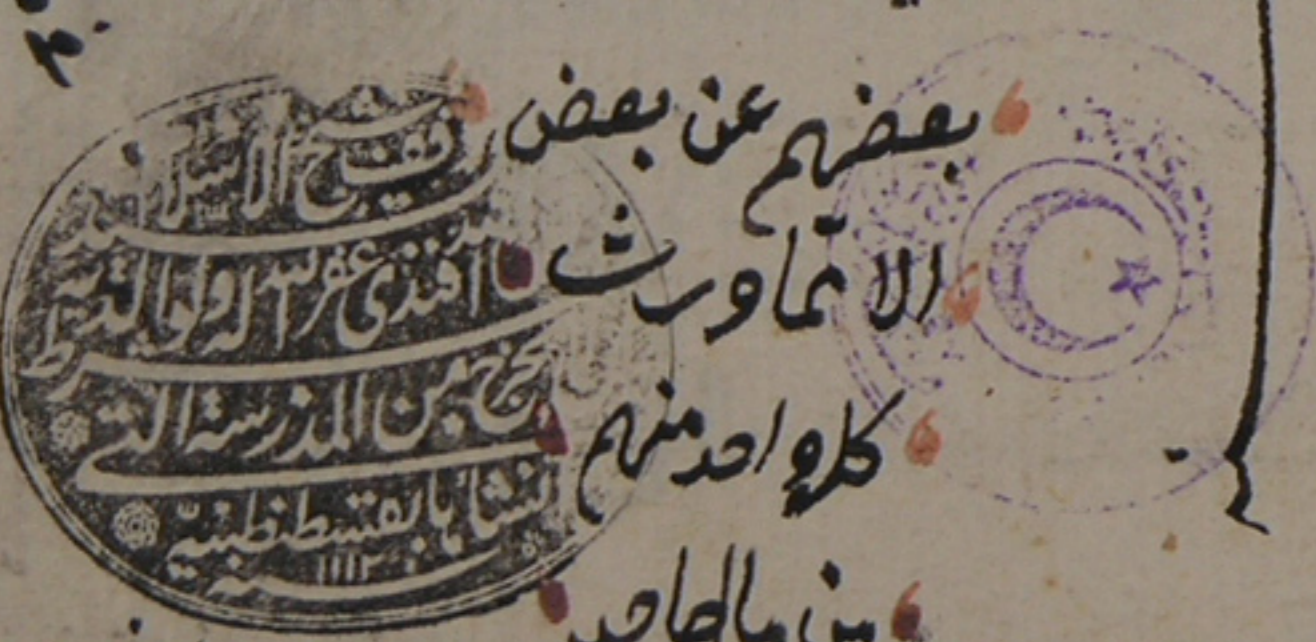 بعضهم عن بعض
الا مما ورث
كل واحد منهم
من مال صاحبه
وقف شيخ الاسلام السيد
افندي غفر الله له ولوالديه
بشرط
يخرج من المدرسة التي
انشاها بقسطنطينية
سنة ١١١٢